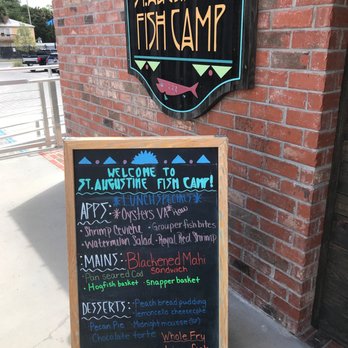 ST. AUGUSTINE
FISH CAMP
WELCOME TO
ST. AUGUSTINE FISH CAMP!
*LUNCH SPECIALS*
APPS: *Oysters VA*
• Shrimp • Grouper fish bites
• Watermelon Salad • Royal Red Shrimp
MAINS: Blackened Mahi
sandwich
• Pan seared Cod
• Hogfish basket • snapper basket
DESSERTS: • Peach bread pudding
• lemoncello cheesecake
Pecan Pie • Midnight mousse (GF)
Chocolate torte
Whole Fry